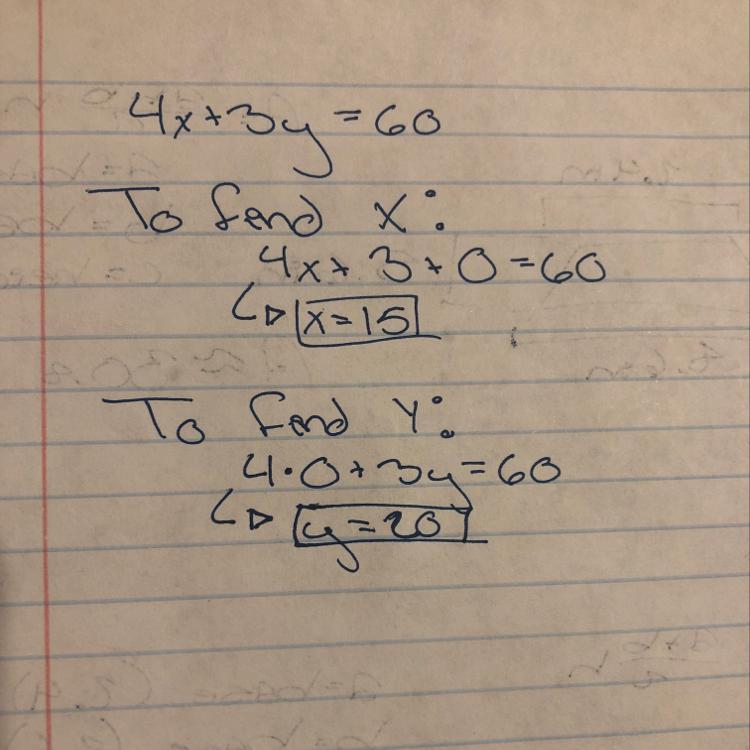 4x+3y=60
To find X:
4x+3+0=60
↳ x=15
To find Y:
4·0+3y=60
↳ y=20